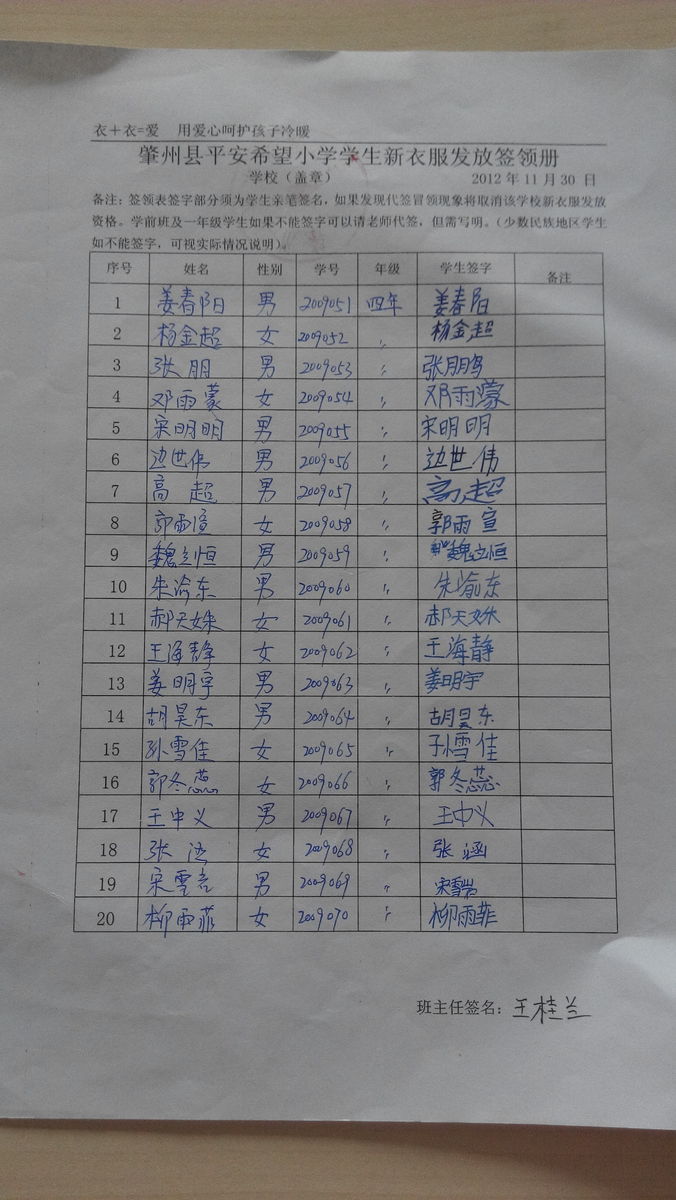 衣＋衣=爱 用爱心呵护孩子冷暖
肇州县平安希望小学学生新衣服发放签领册
学校（盖章） 2012 年 11 月 30 日
备注：签领表签字部分须为学生亲笔签名，如果发现代签冒领现象将取消该学校新衣服发放
资格。学前班及一年级学生如果不能签字可以请老师代签，但需写明。（少数民族地区学生
如不能签字，可视实际情况说明）。
序号 姓名 性别 学号 年级 学生签字 备注
1 姜春阳 男 2009051 四年 姜春阳
2 杨金超 女 2009052 〃 杨金超
3 张朋 男 2009053 〃 张朋
4 邓雨蒙 女 2009054 〃 邓雨濛
5 宋明明 男 2009055 〃 宋明明
6 边世伟 男 2009056 〃 边世伟
7 高超 男 2009057 〃 高超
8 郭雨 女 2009058 〃 郭雨宣
9 魏立恒 男 2009059 〃 魏立恒
10 朱渝东 男 2009060 〃 朱渝东
11 郝天姝 女 2009061 〃 郝天姝
12 王海静 女 2009062 〃 王海静
13 姜明宇 男 2009063 〃 姜明宇
14 胡昊东 男 2009064 〃 胡昊东
15 孙雪佳 女 2009065 〃 孙雪佳
16 郭冬蕊 女 2009066 〃 郭冬蕊
17 王中义 男 2009067 〃 王中义
18 张 女 2009068 〃 张涵
19 宋 男 2009069 〃 宋
20 柳雨菲 女 2009070 〃 柳雨菲
班主任签名：王桂兰